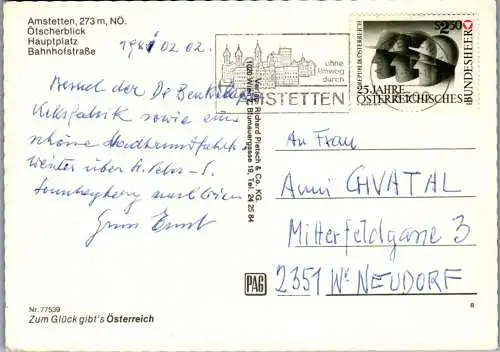 Amstetten, 273 m, NÖ.
Ötscherblick
Hauptplatz
Bahnhofstraße
1981 02 02.
Besuch der De Beukelaer
Keksfabrik sowie eine
schöne Stadtrundfahrt.
weiter über St. Peter -
Sonntagberg nach Wien
Gruss Ernst
Nr. 77539
Zum Glück gibt's Österreich
Verlag Richard Pietsch & Co. KG.
1020 Wien 2, Blumauergasse 19, Tel. 24 25 84
PAG
ohne
Umweg
durch
AMSTETTEN
S 2.50
REPUBLIK ÖSTERREICH
25 JAHRE
ÖSTERREICHISCHES
BUNDESHEER
An Frau
Anni CHVATAL
Mitterfeldgasse 3
2351 Wr. NEUDORF
8